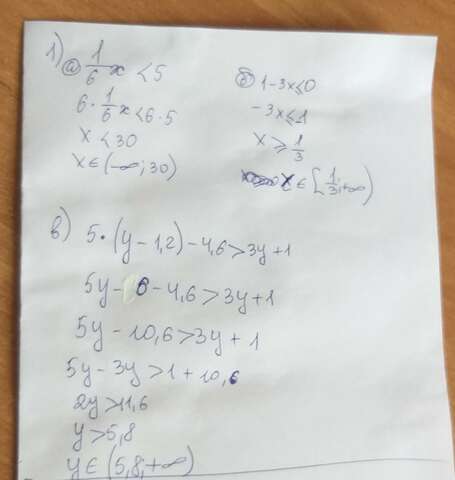 1) а) 1/6 x < 5
6 · 1/6 x < 6 · 5
x < 30
x ∈ (-∞; 30)
б) 1 - 3x ≤ 0
-3x ≤ -1
x ≥ 1/3
x ∈ [1/3; +∞)
в) 5 · (y - 1,2) - 4,6 > 3y + 1
5y - 6 - 4,6 > 3y + 1
5y - 10,6 > 3y + 1
5y - 3y > 1 + 10,6
2y > 11,6
y > 5,8
y ∈ (5,8; +∞)